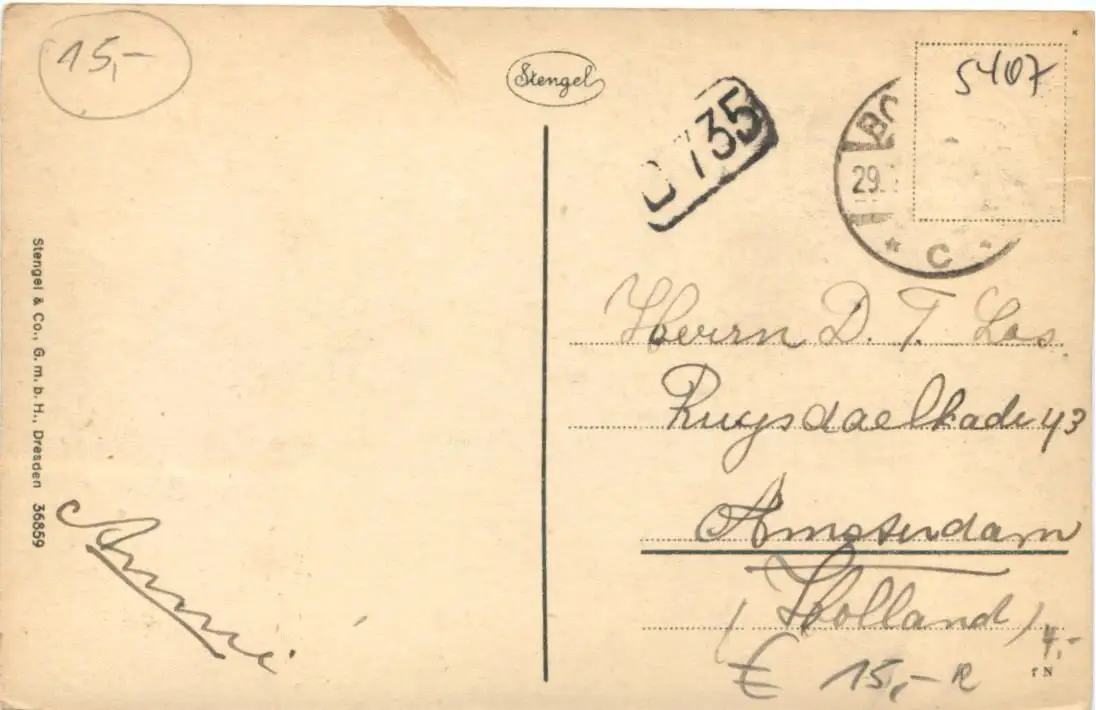 15,-
Stengel
735
5407
29.
* C *
Herrn D. T. Los
Ruysdaelkade 43
Amsterdam
(Holland)
4,-
€ 15,- R
Stengel & Co., G. m. b. H., Dresden 36859
Anni